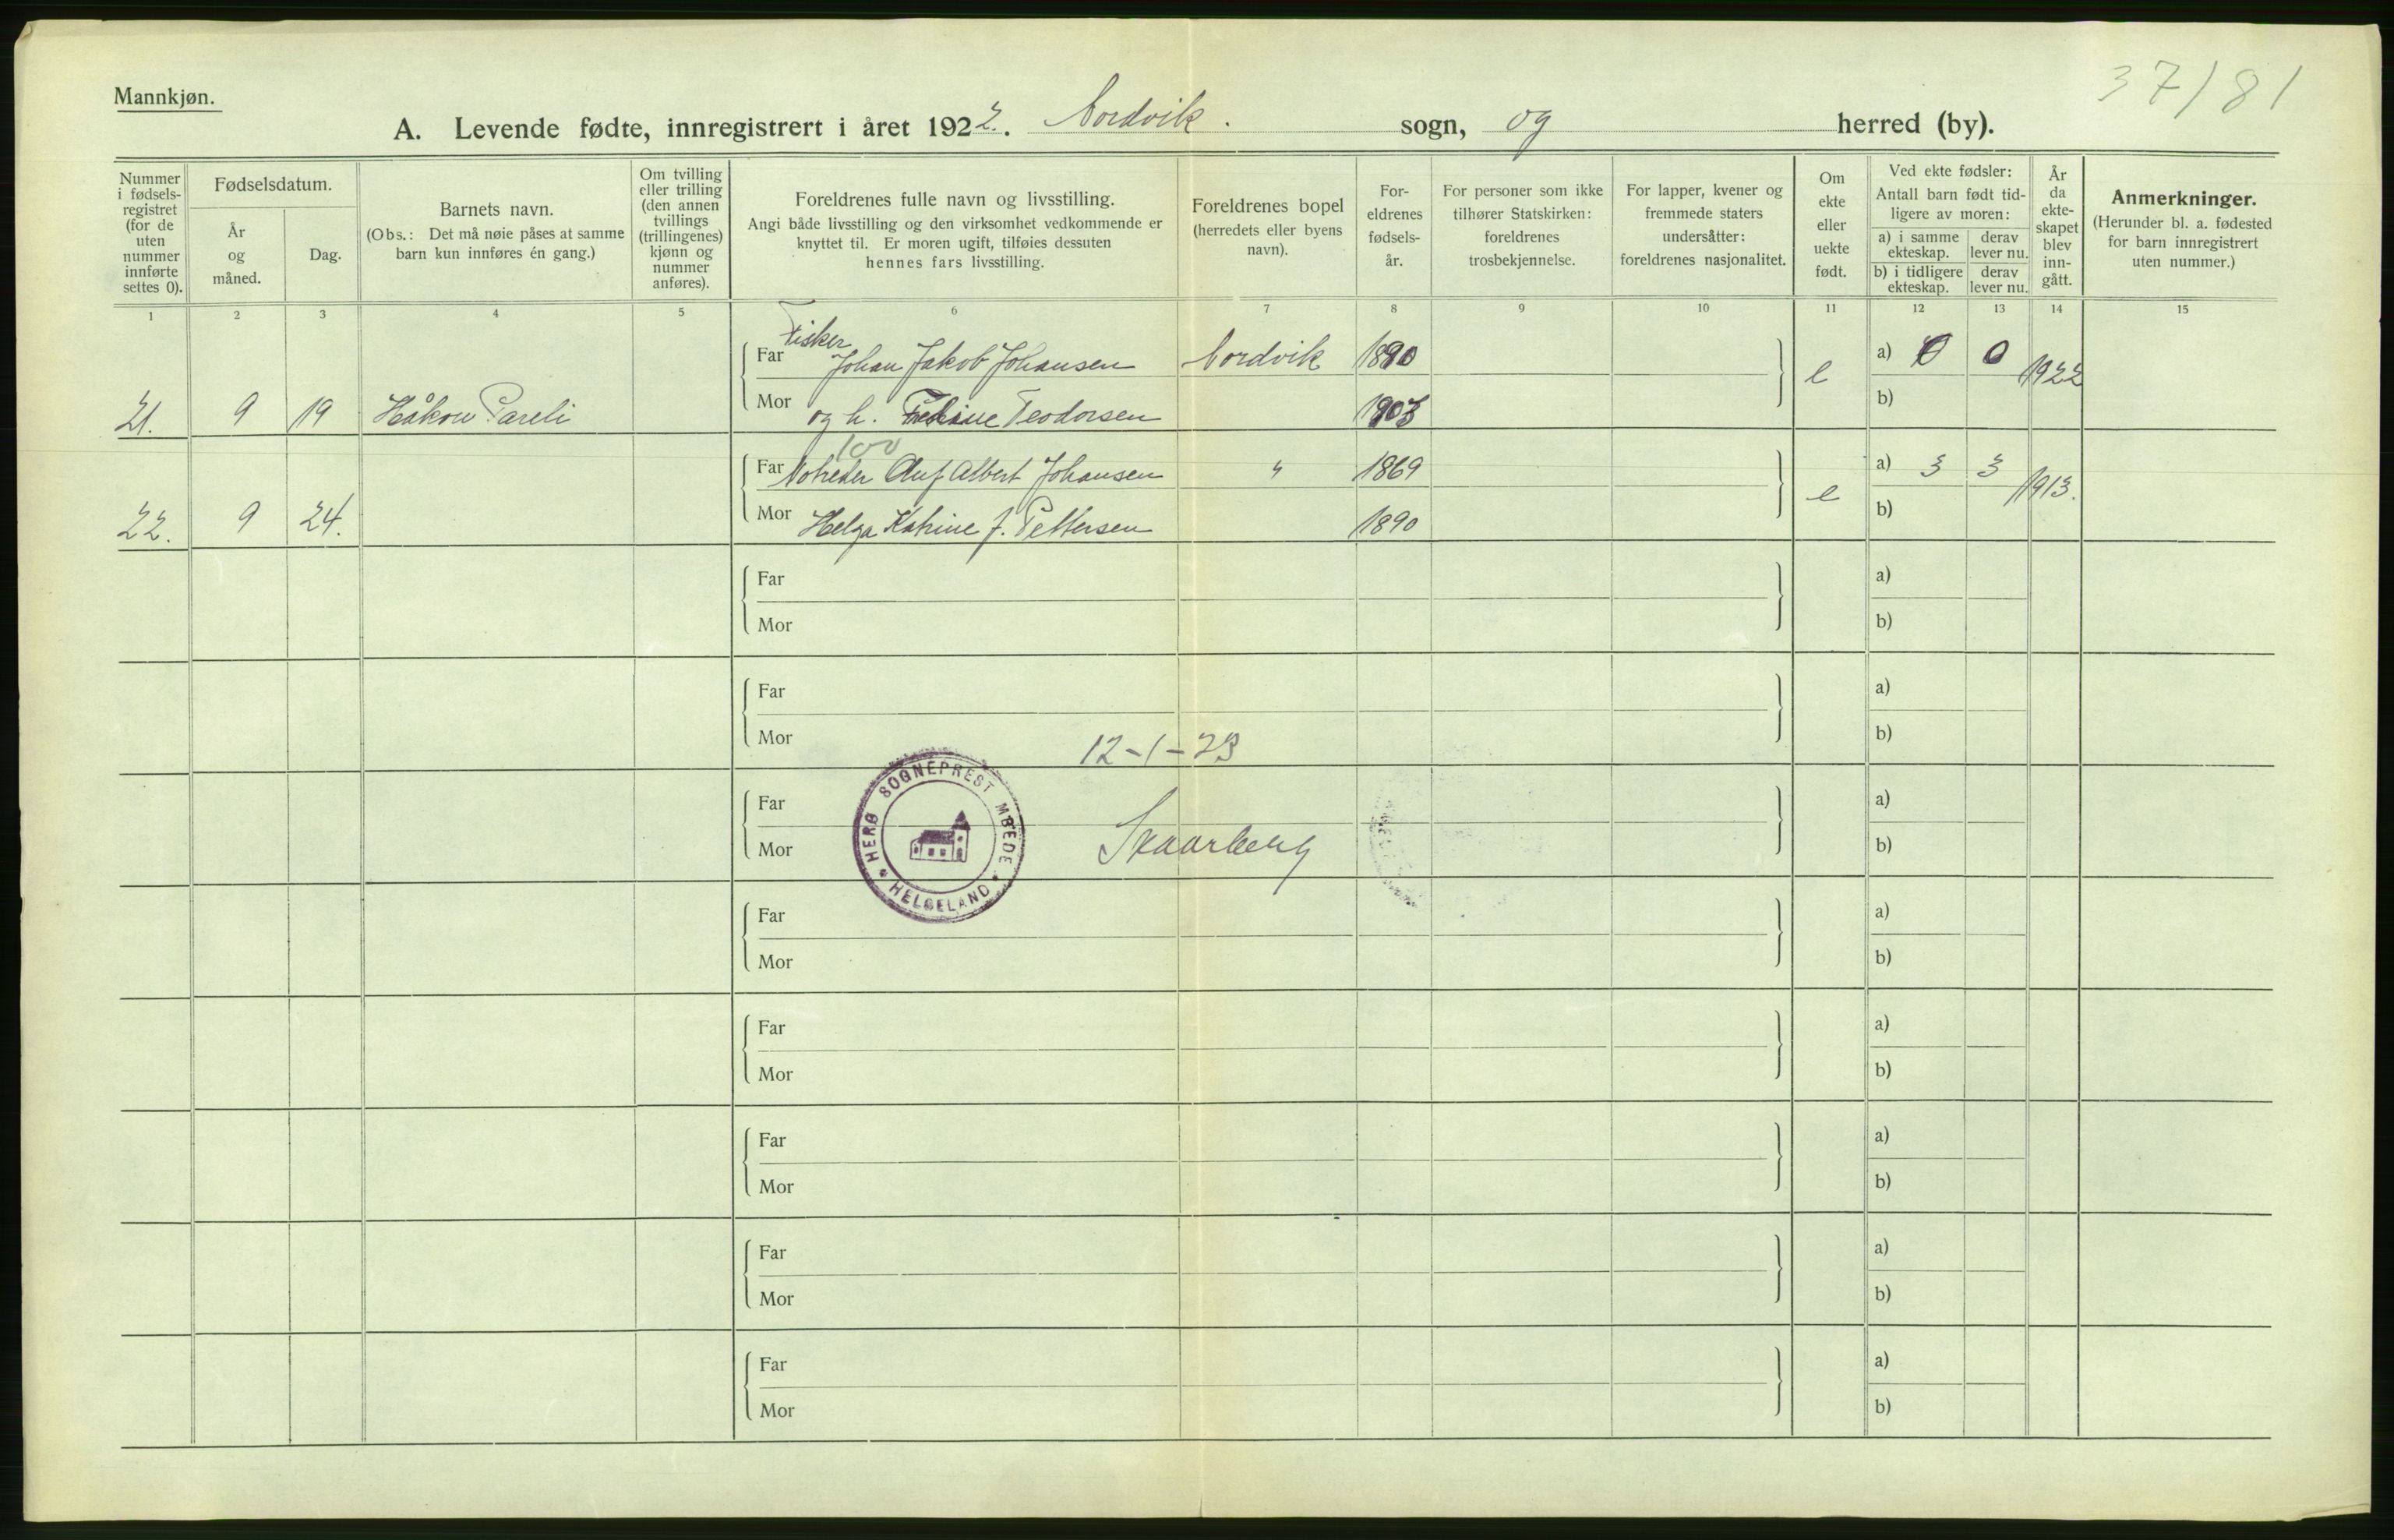 Mannkjøn.
37/81
A. Levende fødte, innregistrert i året 1922. Nordvik. sogn, og herred (by).
Nummer i fødsels-registret (for de uten nummer innførte settes 0).
Fødselsdatum.
År og måned.
Dag.
Barnets navn.
(Obs.: Det må nøie påses at samme barn kun innføres én gang.)
Om tvilling eller trilling (den annen tvillings (trillingenes) kjønn og nummer anføres).
Foreldrenes fulle navn og livsstilling.
Angi både livsstilling og den virksomhet vedkommende er knyttet til. Er moren ugift, tilføies dessuten hennes fars livsstilling.
Foreldrenes bopel (herredets eller byens navn).
For-eldrenes fødsels-år.
For personer som ikke tilhører Statskirken: foreldrenes trosbekjennelse.
For lapper, kvener og fremmede staters undersåtter: foreldrenes nasjonalitet.
Om ekte eller uekte født.
Ved ekte fødsler:
Antall barn født tid-ligere av moren:
a) i samme ekteskap. derav lever nu.
b) i tidligere ekteskap. derav lever nu.
År da ekte-skapet blev inn-gått.
Anmerkninger.
(Herunder bl. a. fødested for barn innregistrert uten nummer.)
1 2 3 4 5 6 7 8 9 10 11 12 13 14 15
Fisker
Far Johan Jakob Johansen Nordvik 1890 e a) 0 0 1922
21. 9 19 Håkon Pareli Mor og h. Teodorsen 1903 b)
100
Far Albert Johansen " 1869 e a) 3 3 1913.
22. 9 24. Mor Helga Katrine f. Pettersen 1890 b)
Far a)
Mor b)
Far a)
Mor b)
12-1-23
HERØ SOGNEPREST MBEDE
HELGELAND
Far a)
Skaarberg
Mor b)
Far a)
Mor b)
Far a)
Mor b)
Far a)
Mor b)
Far a)
Mor b)
Far a)
Mor b)